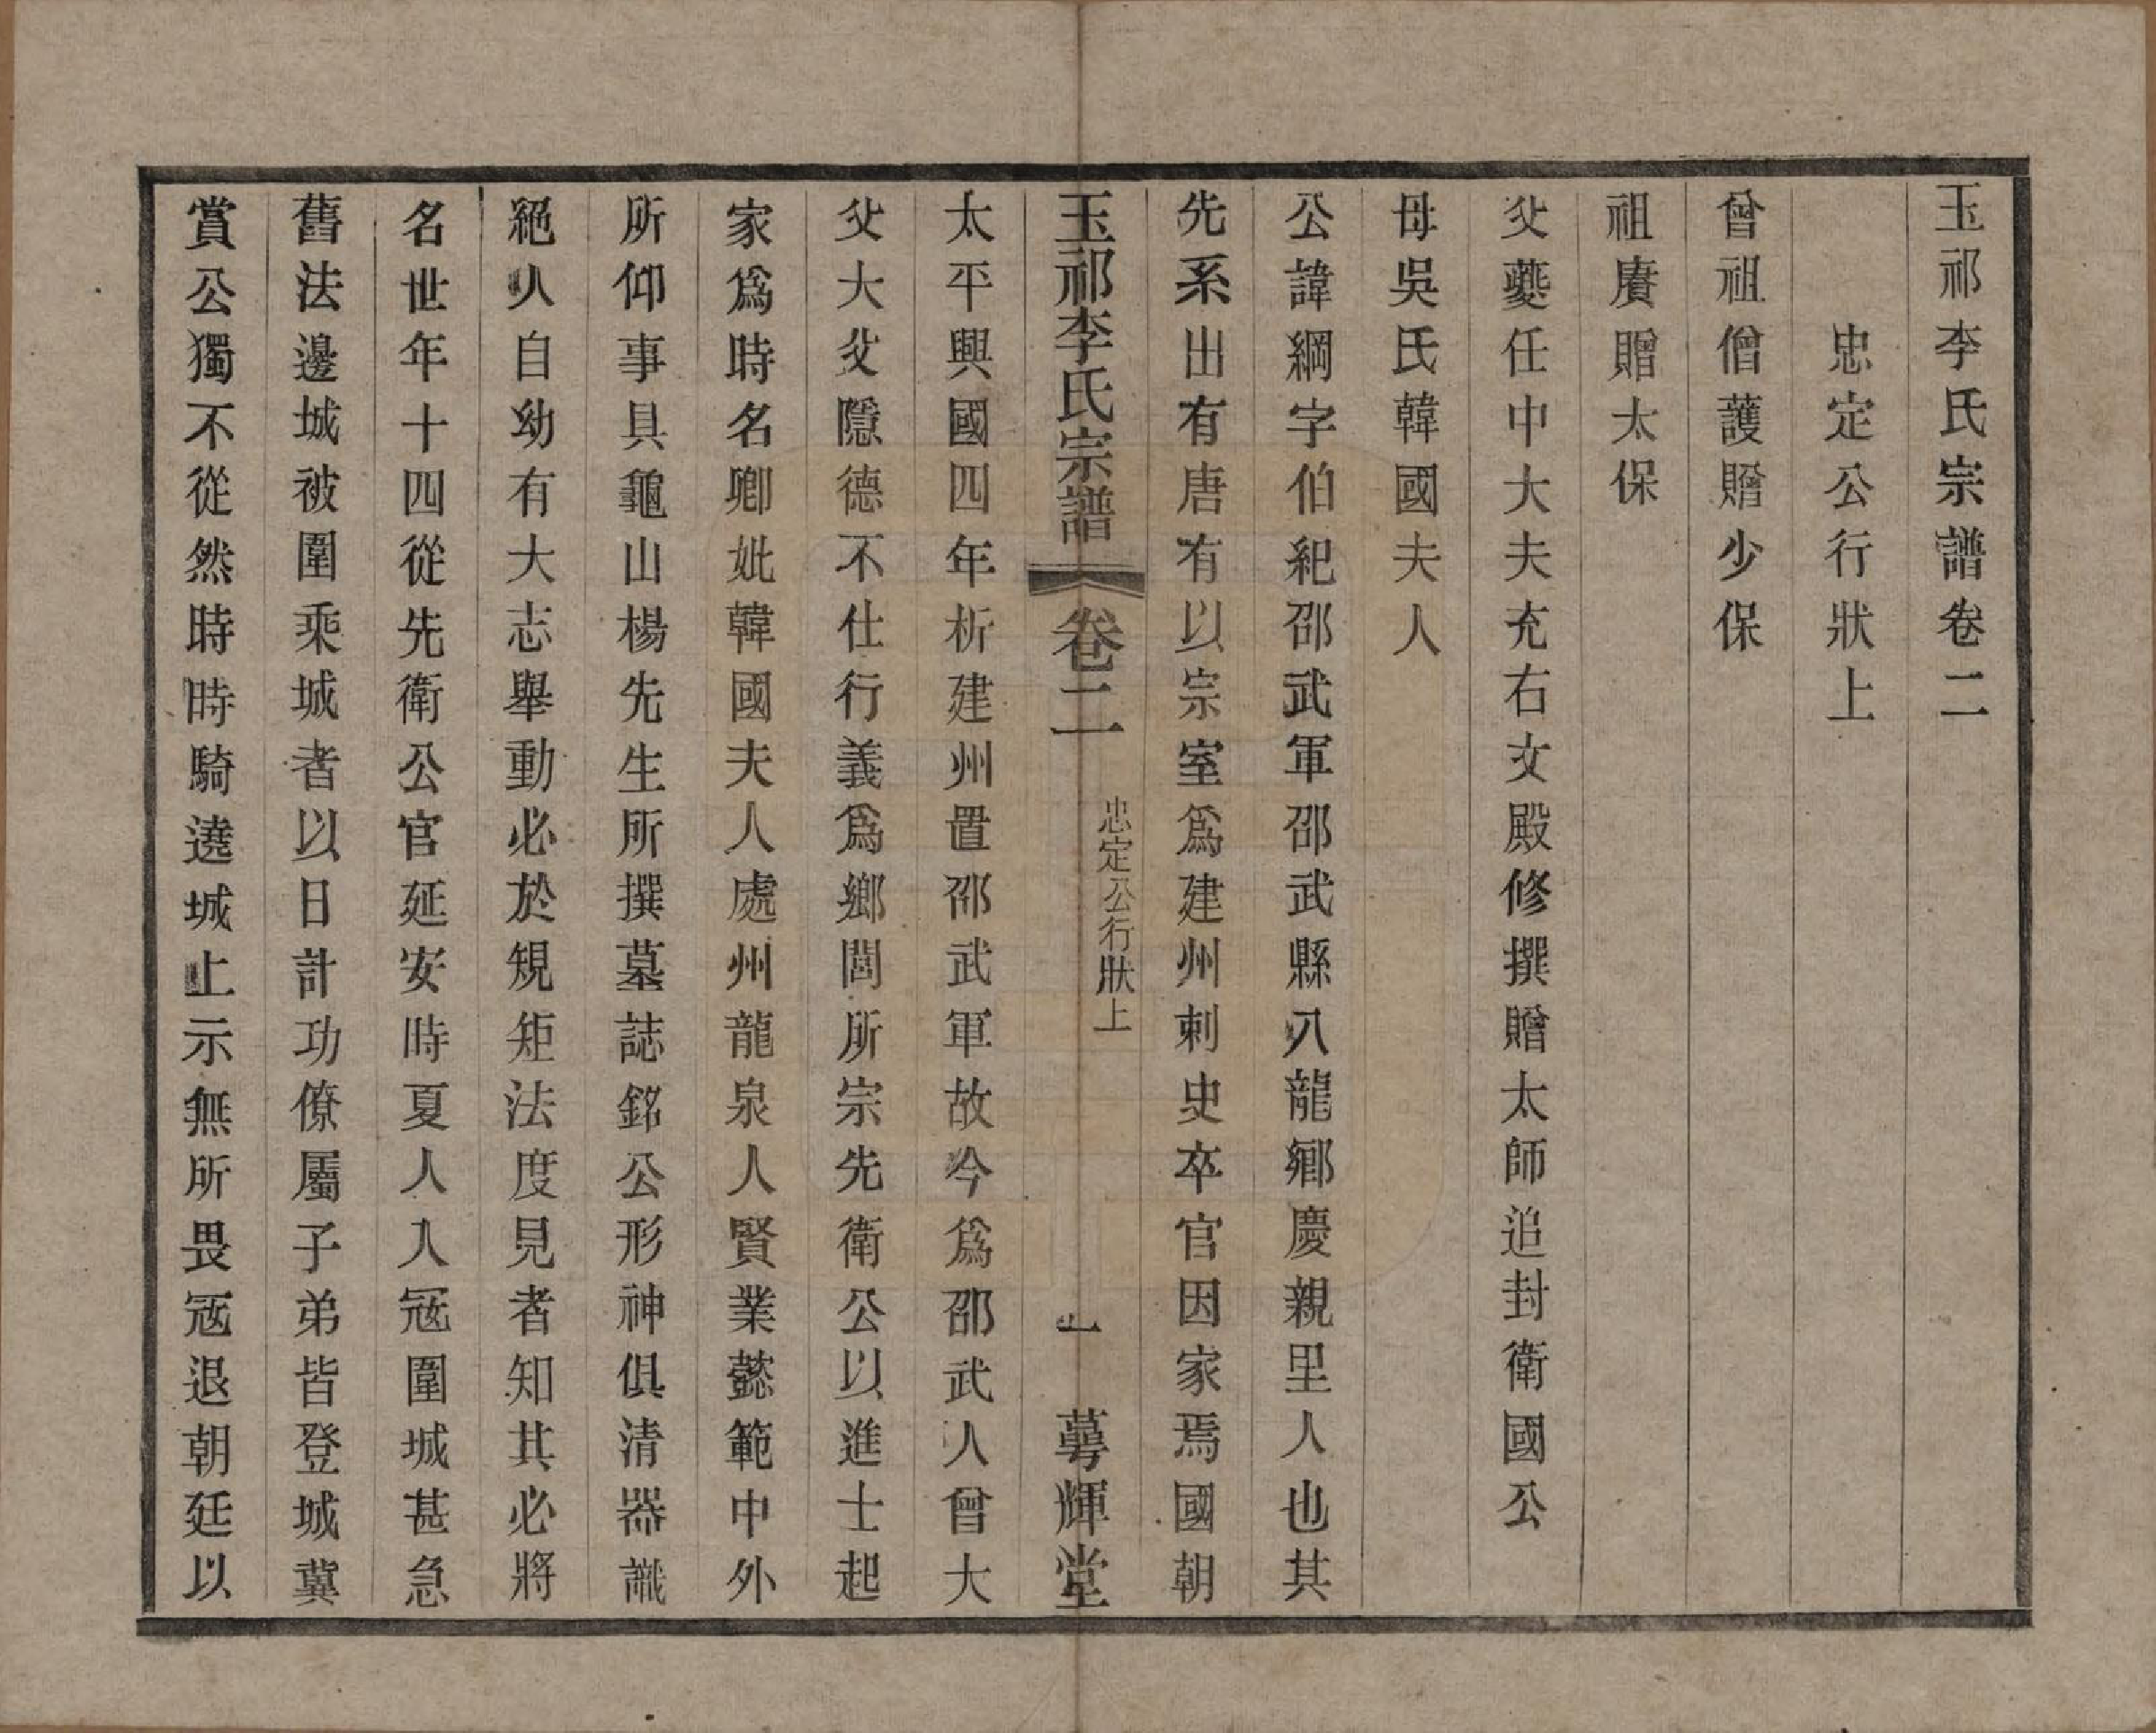 玉祁李氏宗譜卷二
忠定公行狀上
曾祖僧護贈少保
祖賡贈太保
父夔任中大夫充右文殿修撰贈太師追封衛國公
母吳氏韓國夫人
公諱綱字伯紀邵武軍邵武縣八龍鄉慶親里人也其
先系出有唐有以宗室爲建州刺史卒官因家焉國朝
玉祁李氏宗譜 卷二 忠定公行狀上 一 萼輝堂
太平興國四年析建州置邵武軍故今爲邵武人曾大
父大父隱德不仕行義爲鄉閭所宗先衛公以進士起
家爲時名卿妣韓國夫人處州龍泉人賢業懿範中外
所仰事具龜山楊先生所撰墓誌銘公形神俱清器識
絕人自幼有大志舉動必於規矩法度見者知其必將
名世年十四從先衛公官延安時夏人入寇圍城甚急
舊法邊城被圍乘城者以日計功僚屬子弟皆登城冀
賞公獨不從然時時騎遶城上示無所畏寇退朝廷以